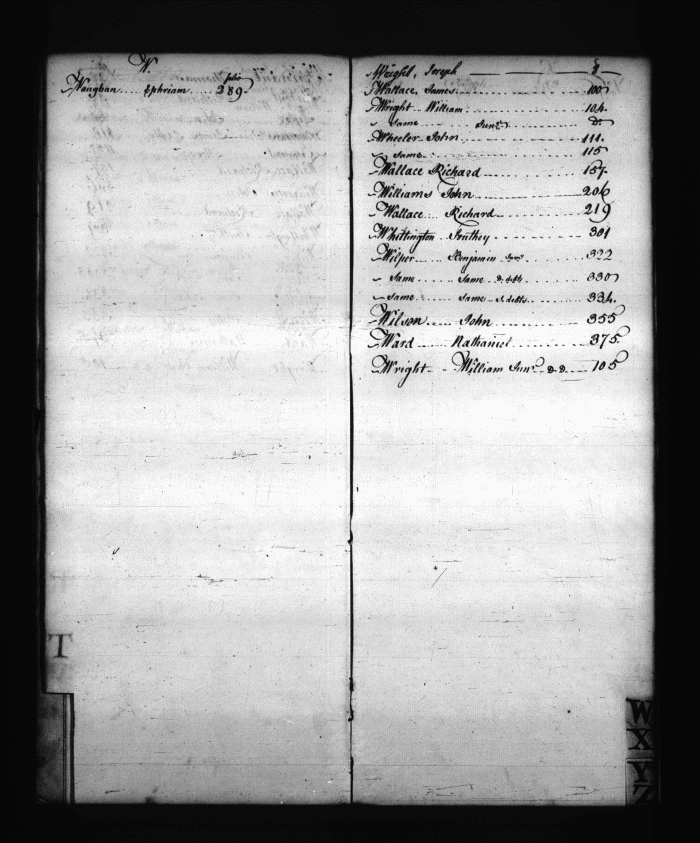 W.
folio
Vaughan Ephriam 289
Wright, Joseph
Wallace, James 100
Wright William 104
Same Junr. Do.
Wheeler John 111
Same 115
Wallace Richard 157
Williams John 206
Wallace Richard 219
Whittington Southey 301
Benjamin Junr. 322
Same Same D. debts 330
Same Same S. debts 334
Wilson John 355
Ward Nathaniel 375
Wright William Junr. D. D. 105
T
W
X
Y
Z